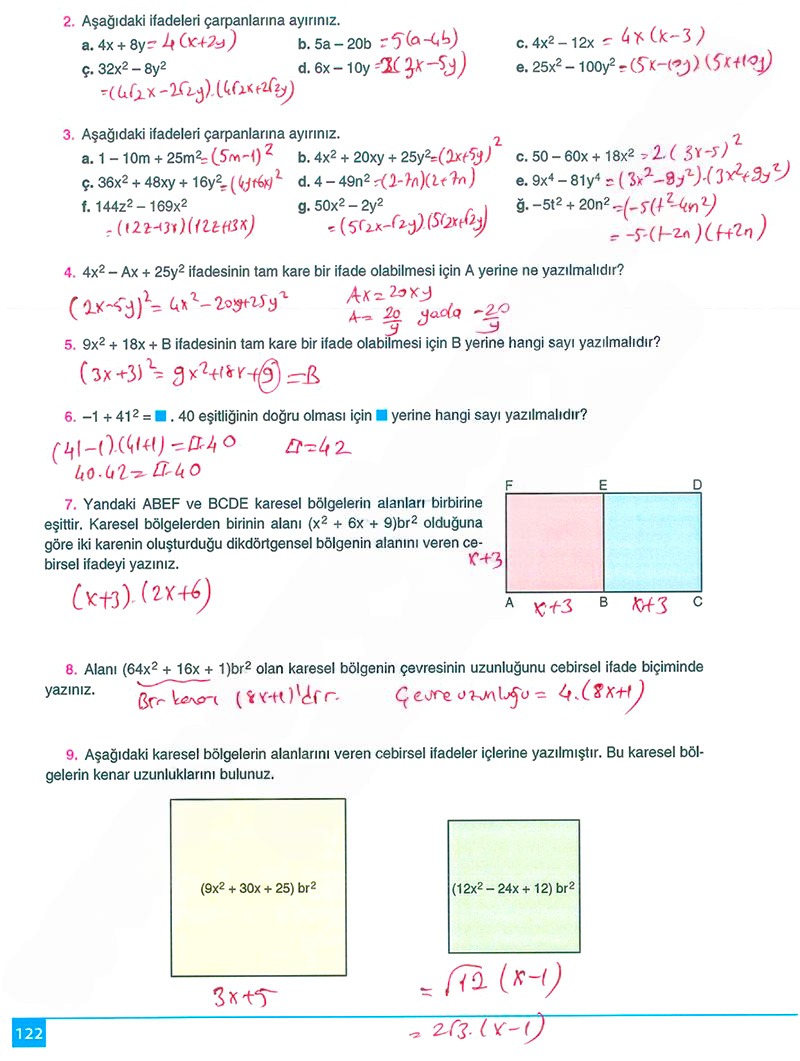 2. Aşağıdaki ifadeleri çarpanlarına ayırınız.
a. 4x + 8y = 4(x+2y) b. 5a – 20b = 5(a-4b) c. 4x² – 12x = 4x(x-3)
ç. 32x² – 8y² d. 6x – 10y = 2(3x-5y) e. 25x² – 100y² = (5x-10y)(5x+10y)
=(4√2x-2√2y).(4√2x+2√2y)
3. Aşağıdaki ifadeleri çarpanlarına ayırınız.
a. 1 – 10m + 25m² = (5m-1)² b. 4x² + 20xy + 25y² = (2x+5y)² c. 50 – 60x + 18x² = 2.(3x-5)²
ç. 36x² + 48xy + 16y² = (4y+6x)² d. 4 – 49n² = (2-7n)(2+7n) e. 9x⁴ – 81y⁴ = (3x²-9y²).(3x²+9y²)
f. 144z² – 169x² g. 50x² – 2y² ğ. –5t² + 20n² = (-5(t²-4n²)
= (12z-13x)(12z+13x) = (5√2x-√2y).(5√2x+√2y) = -5.(t-2n)(t+2n)
4. 4x² – Ax + 25y² ifadesinin tam kare bir ifade olabilmesi için A yerine ne yazılmalıdır?
(2x-5y)² = 4x²-20xy+25y² Ax = 20xy
A = 20/y yada -20/y
5. 9x² + 18x + B ifadesinin tam kare bir ifade olabilmesi için B yerine hangi sayı yazılmalıdır?
(3x+3)² = 9x²+18x+9 = B
6. –1 + 41² = ■ . 40 eşitliğinin doğru olması için ■ yerine hangi sayı yazılmalıdır?
(41-1).(41+1) = □.40 □=42
40.42 = □.40
F E D
7. Yandaki ABEF ve BCDE karesel bölgelerin alanları birbirine
eşittir. Karesel bölgelerden birinin alanı (x² + 6x + 9)br² olduğuna
göre iki karenin oluşturduğu dikdörtgensel bölgenin alanını veren ce-
birsel ifadeyi yazınız.
x+3
(x+3).(2x+6)
A x+3 B x+3 C
8. Alanı (64x² + 16x + 1)br² olan karesel bölgenin çevresinin uzunluğunu cebirsel ifade biçiminde
yazınız.
Bir kenarı (8x+1)'dir. Çevre uzunluğu = 4.(8x+1)
9. Aşağıdaki karesel bölgelerin alanlarını veren cebirsel ifadeler içlerine yazılmıştır. Bu karesel böl-
gelerin kenar uzunluklarını bulunuz.
(9x² + 30x + 25) br² (12x² – 24x + 12) br²
3x+5 = √12 (x-1)
= 2√3.(x-1)
122